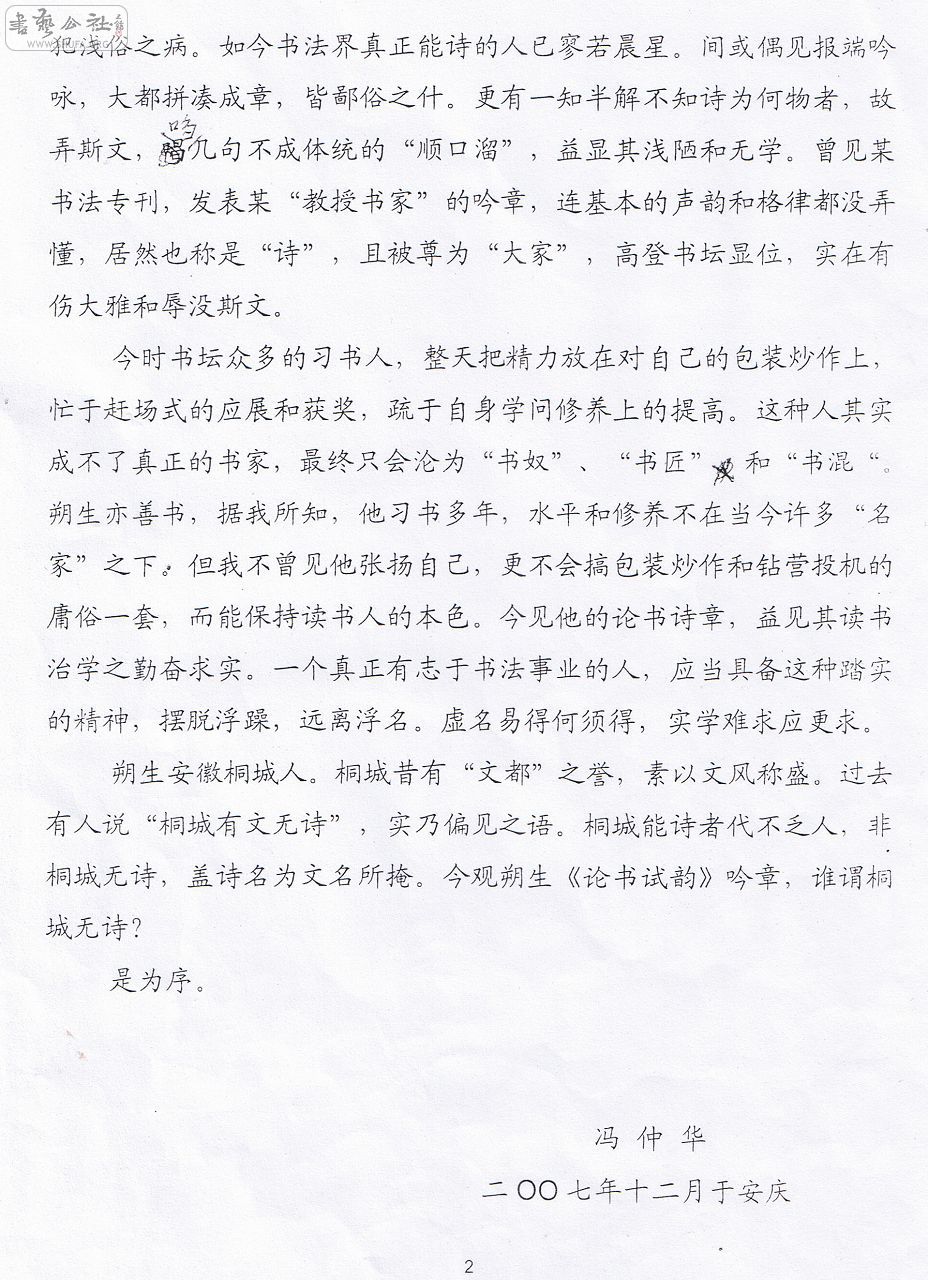 書藝公社
犯浅俗之病。如今书法界真正能诗的人已寥若晨星。间或偶见报端吟
咏，大都拼凑成章，皆鄙俗之什。更有一知半解不知诗为何物者，故
哆
弄斯文，几句不成体统的“顺口溜”，益显其浅陋和无学。曾见某
书法专刊，发表某“教授书家”的吟章，连基本的声韵和格律都没弄
懂，居然也称是“诗”，且被尊为“大家”，高登书坛显位，实在有
伤大雅和辱没斯文。
今时书坛众多的习书人，整天把精力放在对自己的包装炒作上，
忙于赶场式的应展和获奖，疏于自身学问修养上的提高。这种人其实
成不了真正的书家，最终只会沦为“书奴”、“书匠”和“书混“。
朔生亦善书，据我所知，他习书多年，水平和修养不在当今许多“名
家”之下。但我不曾见他张扬自己，更不会搞包装炒作和钻营投机的
庸俗一套，而能保持读书人的本色。今见他的论书诗章，益见其读书
治学之勤奋求实。一个真正有志于书法事业的人，应当具备这种踏实
的精神，摆脱浮躁，远离浮名。虚名易得何须得，实学难求应更求。
朔生安徽桐城人。桐城昔有“文都”之誉，素以文风称盛。过去
有人说“桐城有文无诗”，实乃偏见之语。桐城能诗者代不乏人，非
桐城无诗，盖诗名为文名所掩。今观朔生《论书试韵》吟章，谁谓桐
城无诗？
是为序。
冯仲华
二〇〇七年十二月于安庆
2